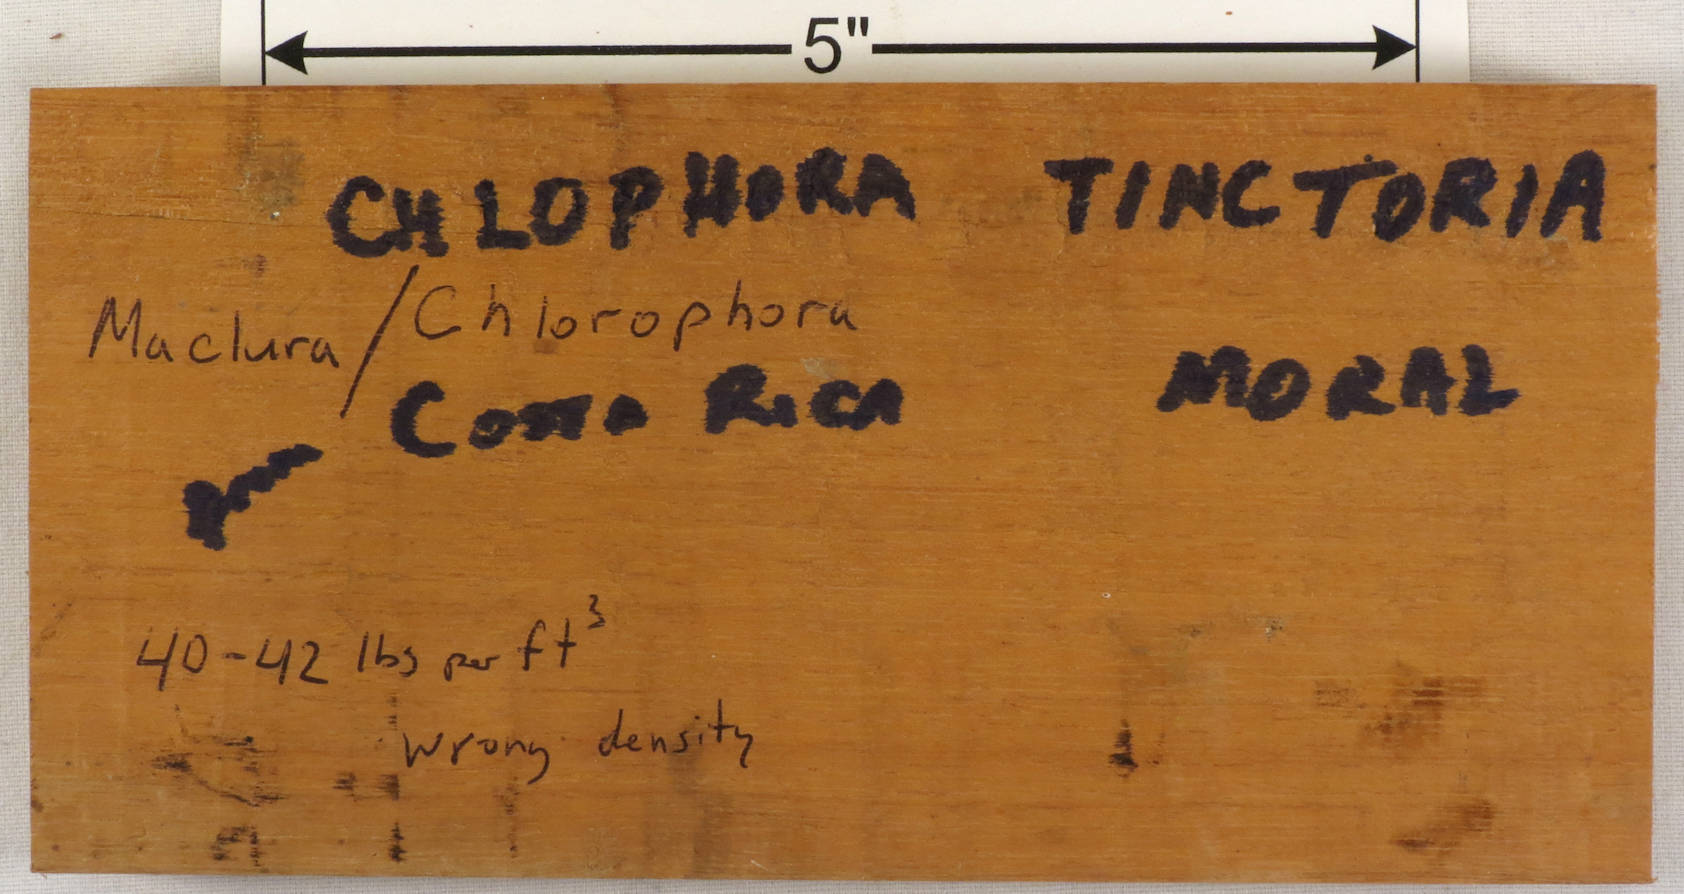 5"
CHLOPHORA TINCTORIA
Maclura/Chlorophora
COSTA RICA MORAL
40-42 lbs per ft³
wrong density